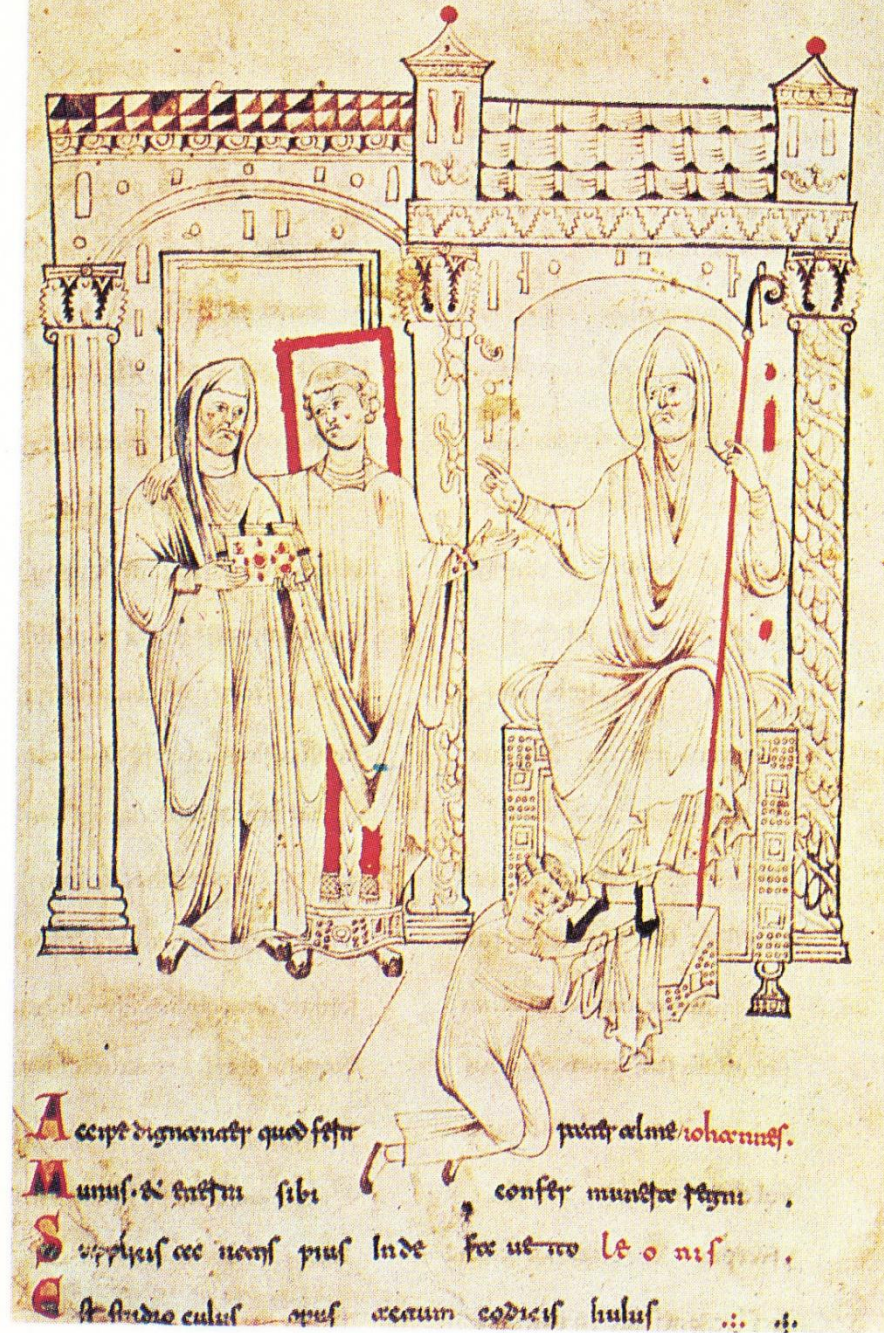 Accipe dignanter quod fert pater alme iohannes.
Munus. & eterni sibi confer munera regni .
Supplicis ac uotis pius inde faueto leonis .
Est studio cuius opus actum codicis huius